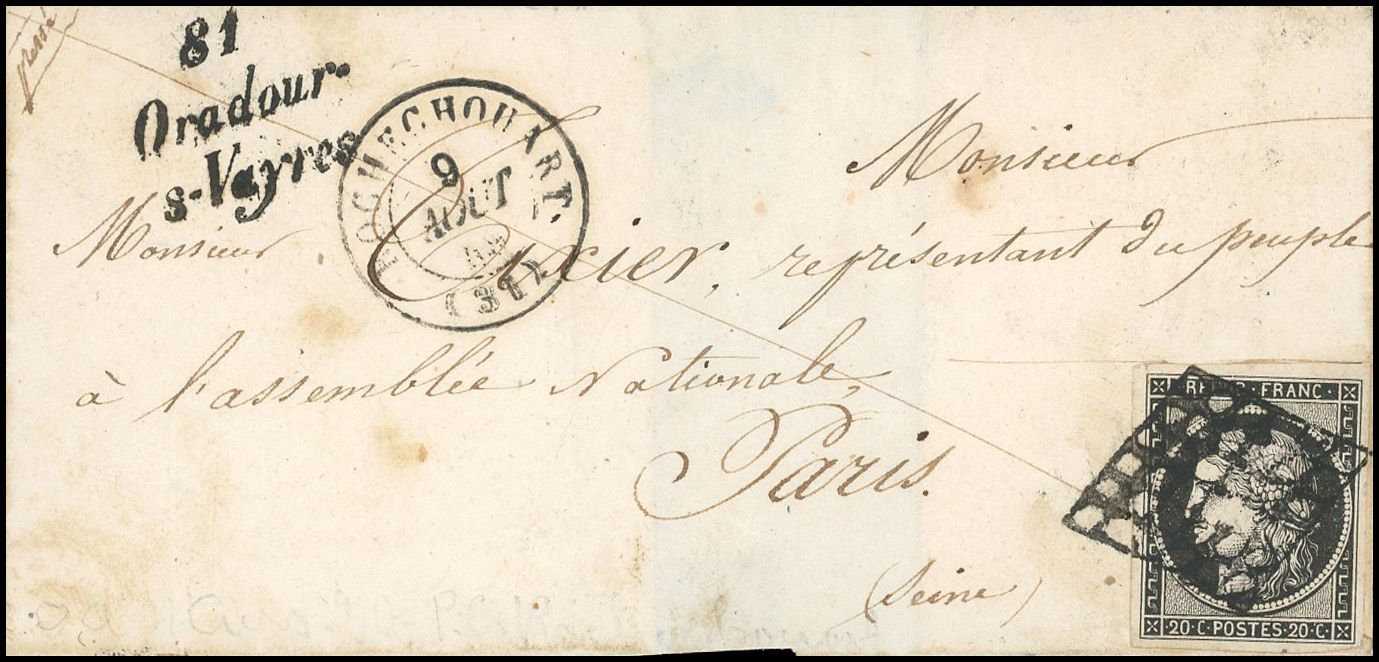 pressé
81
Oradour-
s-Vayres
ROCHECHOUART.
9
AOUT
(81)
Monsieur
Monsieur Coxier, représentant du peuple
à l'assemblée Nationale,
Paris.
(Seine)
REPUB · FRANC ·
20 · C · POSTES · 20 · C ·